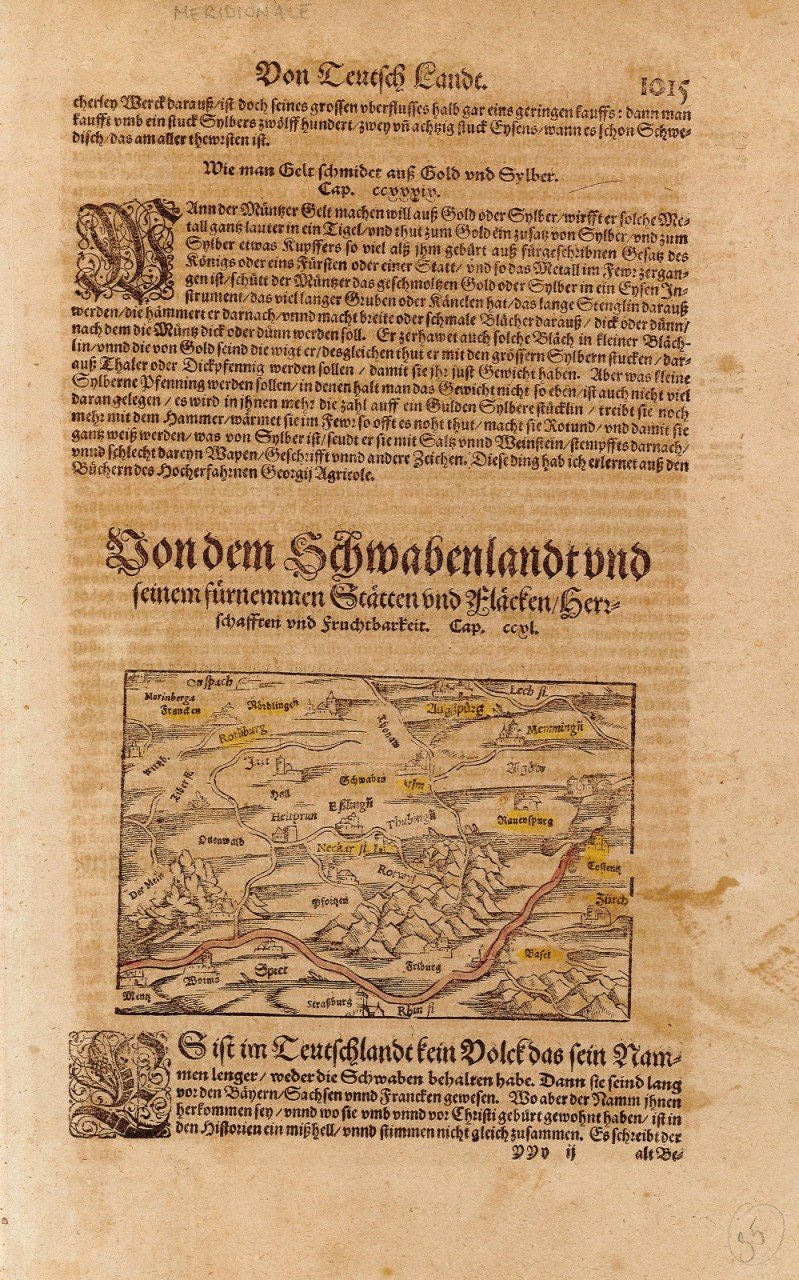 MERIDIONALE
Von Teutsch Landt. 1015
cherley Werck darauß/ist doch seines grossen vberflusses halb gar eins geringen kauffs: dann man
kaufft vmb ein stuck Sylbers zwölff hundert/zwey vñ achtzig stuck Eysens/wann es schon Schwe-
disch/das am aller thewrsten ist.
Wie man Gelt schmidet auß Gold vnd Sylber.
Cap. ccxxxix.
WAnn der Müntzer Gelt machen will auß Gold oder Sylber/wirfft er solche Me-
tall gantz lauter in ein Tigel/vnd thut zum Gold ein zusatz von Sylber/vnd zum
Sylber etwas Kupffers so viel alß jhm gebürt auß fürgeschribnen Gesatz des
Königs oder eins Fürsten oder einer Statt/vnd so das Metall im Fewr zergan-
gen ist/schütt der Müntzer das geschmoltzen Gold oder Sylber in ein Eysen In-
strument/das viel langer Gruben oder Känelen hat/das lange Stenglin darauß
werden/die hämmert er darnach/vnnd macht breite oder schmale Blächer darauß/dick oder dünn/
nach dem die Müntz dick oder dünn werden soll. Er zerhawet auch solche Bläch in kleiner Bläch-
lin/vnnd die von Gold seind die wigt er/desgleichen thut er mit den grössern Sylbern stucken/dar-
auß Thaler oder Dickpfennig werden sollen/damit sie jhr just Gewicht haben. Aber was kleine
Sylberne Pfenning werden sollen/in denen halt man das Gewicht nicht so eben/ist auch nicht viel
daran gelegen/es wird in jhnen mehr die zahl auff ein Gulden Sylbere stücklin/treibt sie noch
mehr mit dem Hammer/wärmet sie im Fewr so offt es noht thut/macht sie Rotund/vnd damit sie
gantz weiß werden/was von Sylber ist/seudt er sie mit Saltz vnnd Weinstein/stempffts darnach/
vnnd schlecht dareyn Wapen/Geschrifft vnnd andere Zeichen. Diese ding hab ich erlernet auß den
Büchern des Hocherfahrnen Georgij Agricole.
Von dem Schwabenlandt vnd
seinem fürnemmen Stätten vnd Fläcken/Herr-
schafften vnd Fruchtbarkeit. Cap. ccxl.
Onspach
Lech fl.
Norinberga
Francken
Nördlingen
Augspurg
Rotnburg
Thonaw
Memmingñ
Wirtzb.
Jaxt
Algöw
Tuber fl.
Schwaben
Vlm
Hall
Eßlingñ
Rauenspurg
Heilprun
Thubingñ
Ottenwald
Neckar fl.
Costentz
Der Mein
Rotwyl
Pfortzen
Zürch
Friburg
Basel
Spier
Worms
Mentz
Straßburg
Rhin fl
ES ist im Teutschlandt kein Volck das sein Nam-
men lenger/weder die Schwaben behalten habe. Dann sie seind lang
vor den Bäyern/Sachsen vnnd Francken gewesen. Wo aber der Namm jhnen
herkommen sey/vnnd wo sie vmb vnnd vor Christi gebürt gewohnt haben/ist in
den Historien ein mißhell/vnnd stimmen nicht gleich zusammen. Es schreibt der
yyy ij alt Be-
95